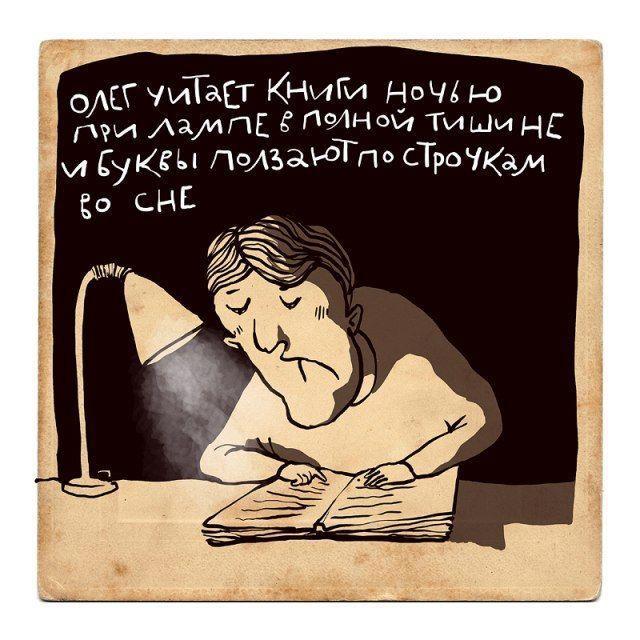 ОЛЕГ ЧИТАЕТ КНИГИ НОЧЬЮ
ПРИ ЛАМПЕ В ПОЛНОЙ ТИШИНЕ
И БУКВЫ ПОЛЗАЮТ ПО СТРОЧКАМ
ВО СНЕ